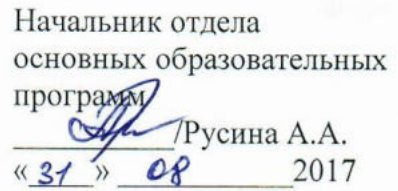 Начальник отдела
основных образовательных
программ
/Русина А.А.
« 31 » 08 2017